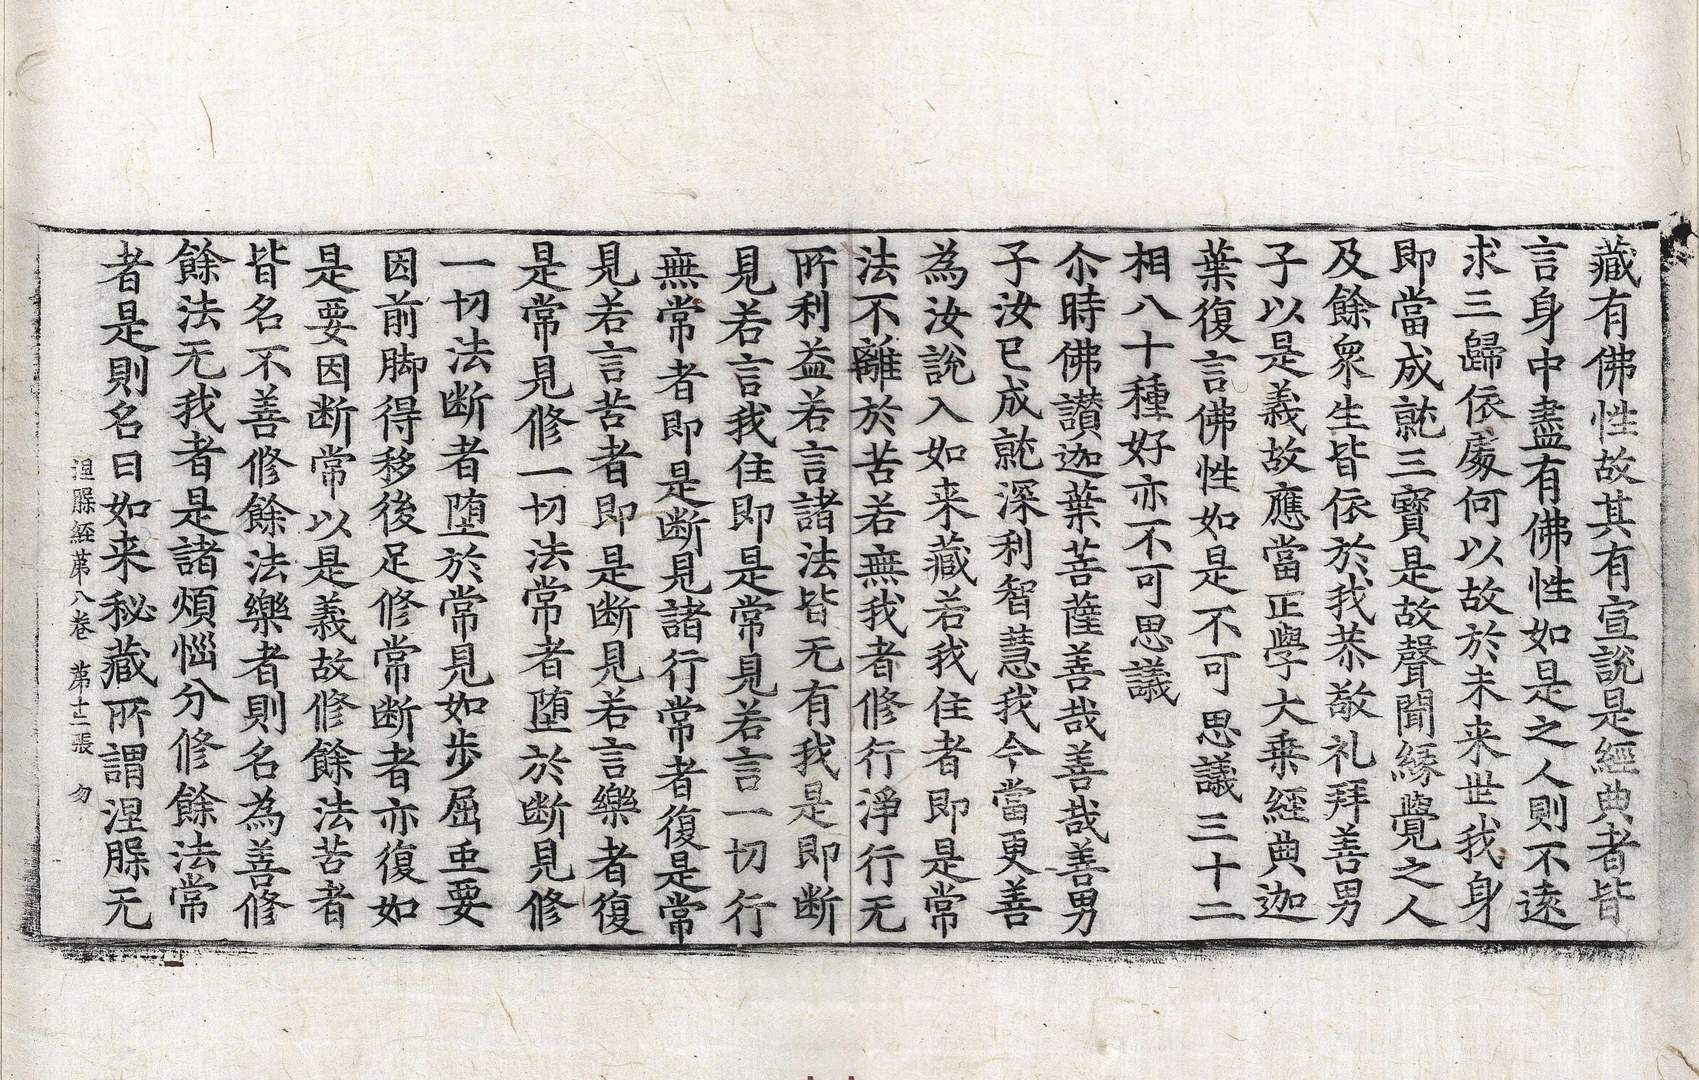 藏有佛性故其有宣說是經典者皆
言身中盡有佛性如是之人則不遠
求三歸依處何以故於未来世我身
即當成就三寶是故聲聞緣覺之人
及餘衆生皆依於我恭敬礼拜善男
子以是義故應當正學大乗經典迦
葉復言佛性如是不可思議三十二
相八十種好亦不可思議
尒時佛讃迦葉菩薩善哉善哉善男
子汝已成就深利智慧我今當更善
為汝說入如来藏若我住者即是常
法不離於苦若無我者修行淨行无
所利益若言諸法皆无有我是即断
見若言我住即是常見若言一切行
無常者即是断見諸行常者復是常
見若言苦者即是断見若言樂者復
是常見修一切法常者堕於断見修
一切法断者堕於常見如步屈垂要
因前脚得移後足修常断者亦復如
是要因断常以是義故修餘法苦者
皆名不善修餘法樂者則名為善修
餘法无我者是諸煩惱分修餘法常
者是則名曰如来秘藏所謂涅槃无
涅槃経第八卷 第十二張 勿